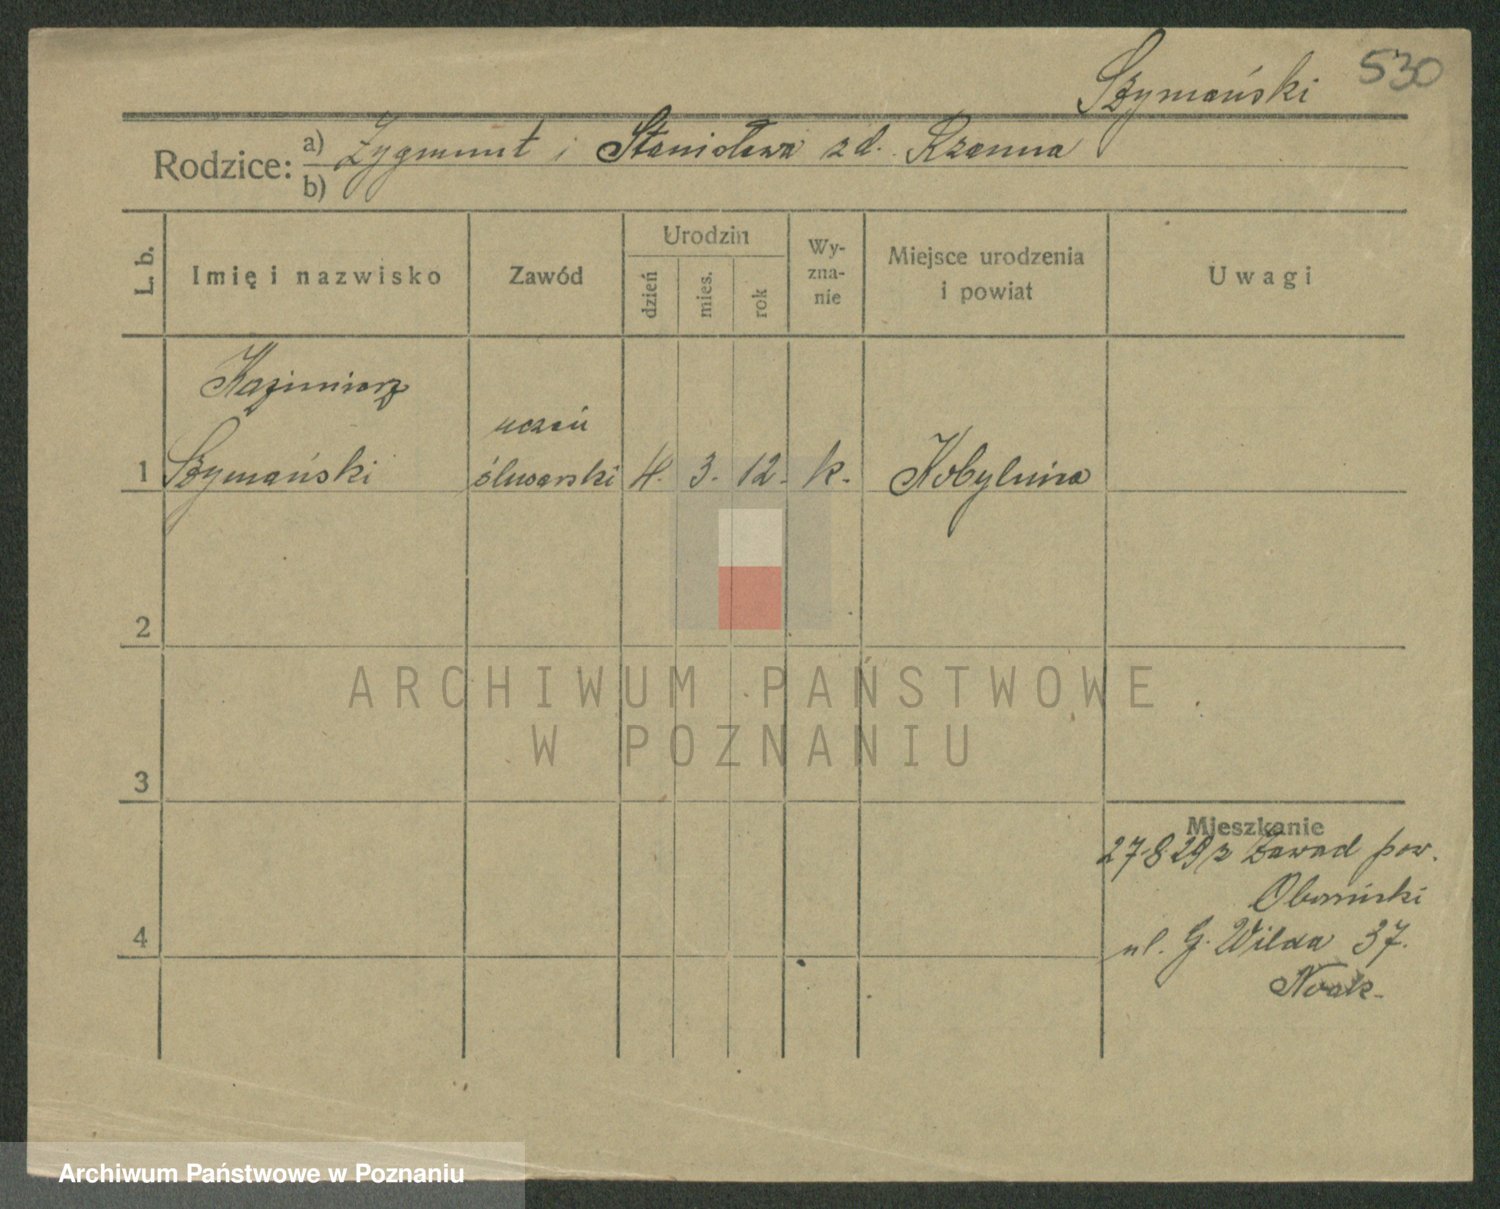 530
Szymański
Rodzice: a) Zygmunt i Stanisława zd. Rzanna
b)
L. b.
Imię i nazwisko
Zawód
Urodzin
dzień
mies.
rok
Wy-
zna-
nie
Miejsce urodzenia
i powiat
Uwagi
Kazimierz
uczeń
1 Szymański ślusarski 4. 3. 12. k. Kobylnica
2
3
4
Mieszkanie
27.8.29 z Zawad pow.
Obornicki
ul. G. Wilda 37.
Nowak.
ARCHIWUM PAŃSTWOWE
W POZNANIU
Archiwum Państwowe w Poznaniu